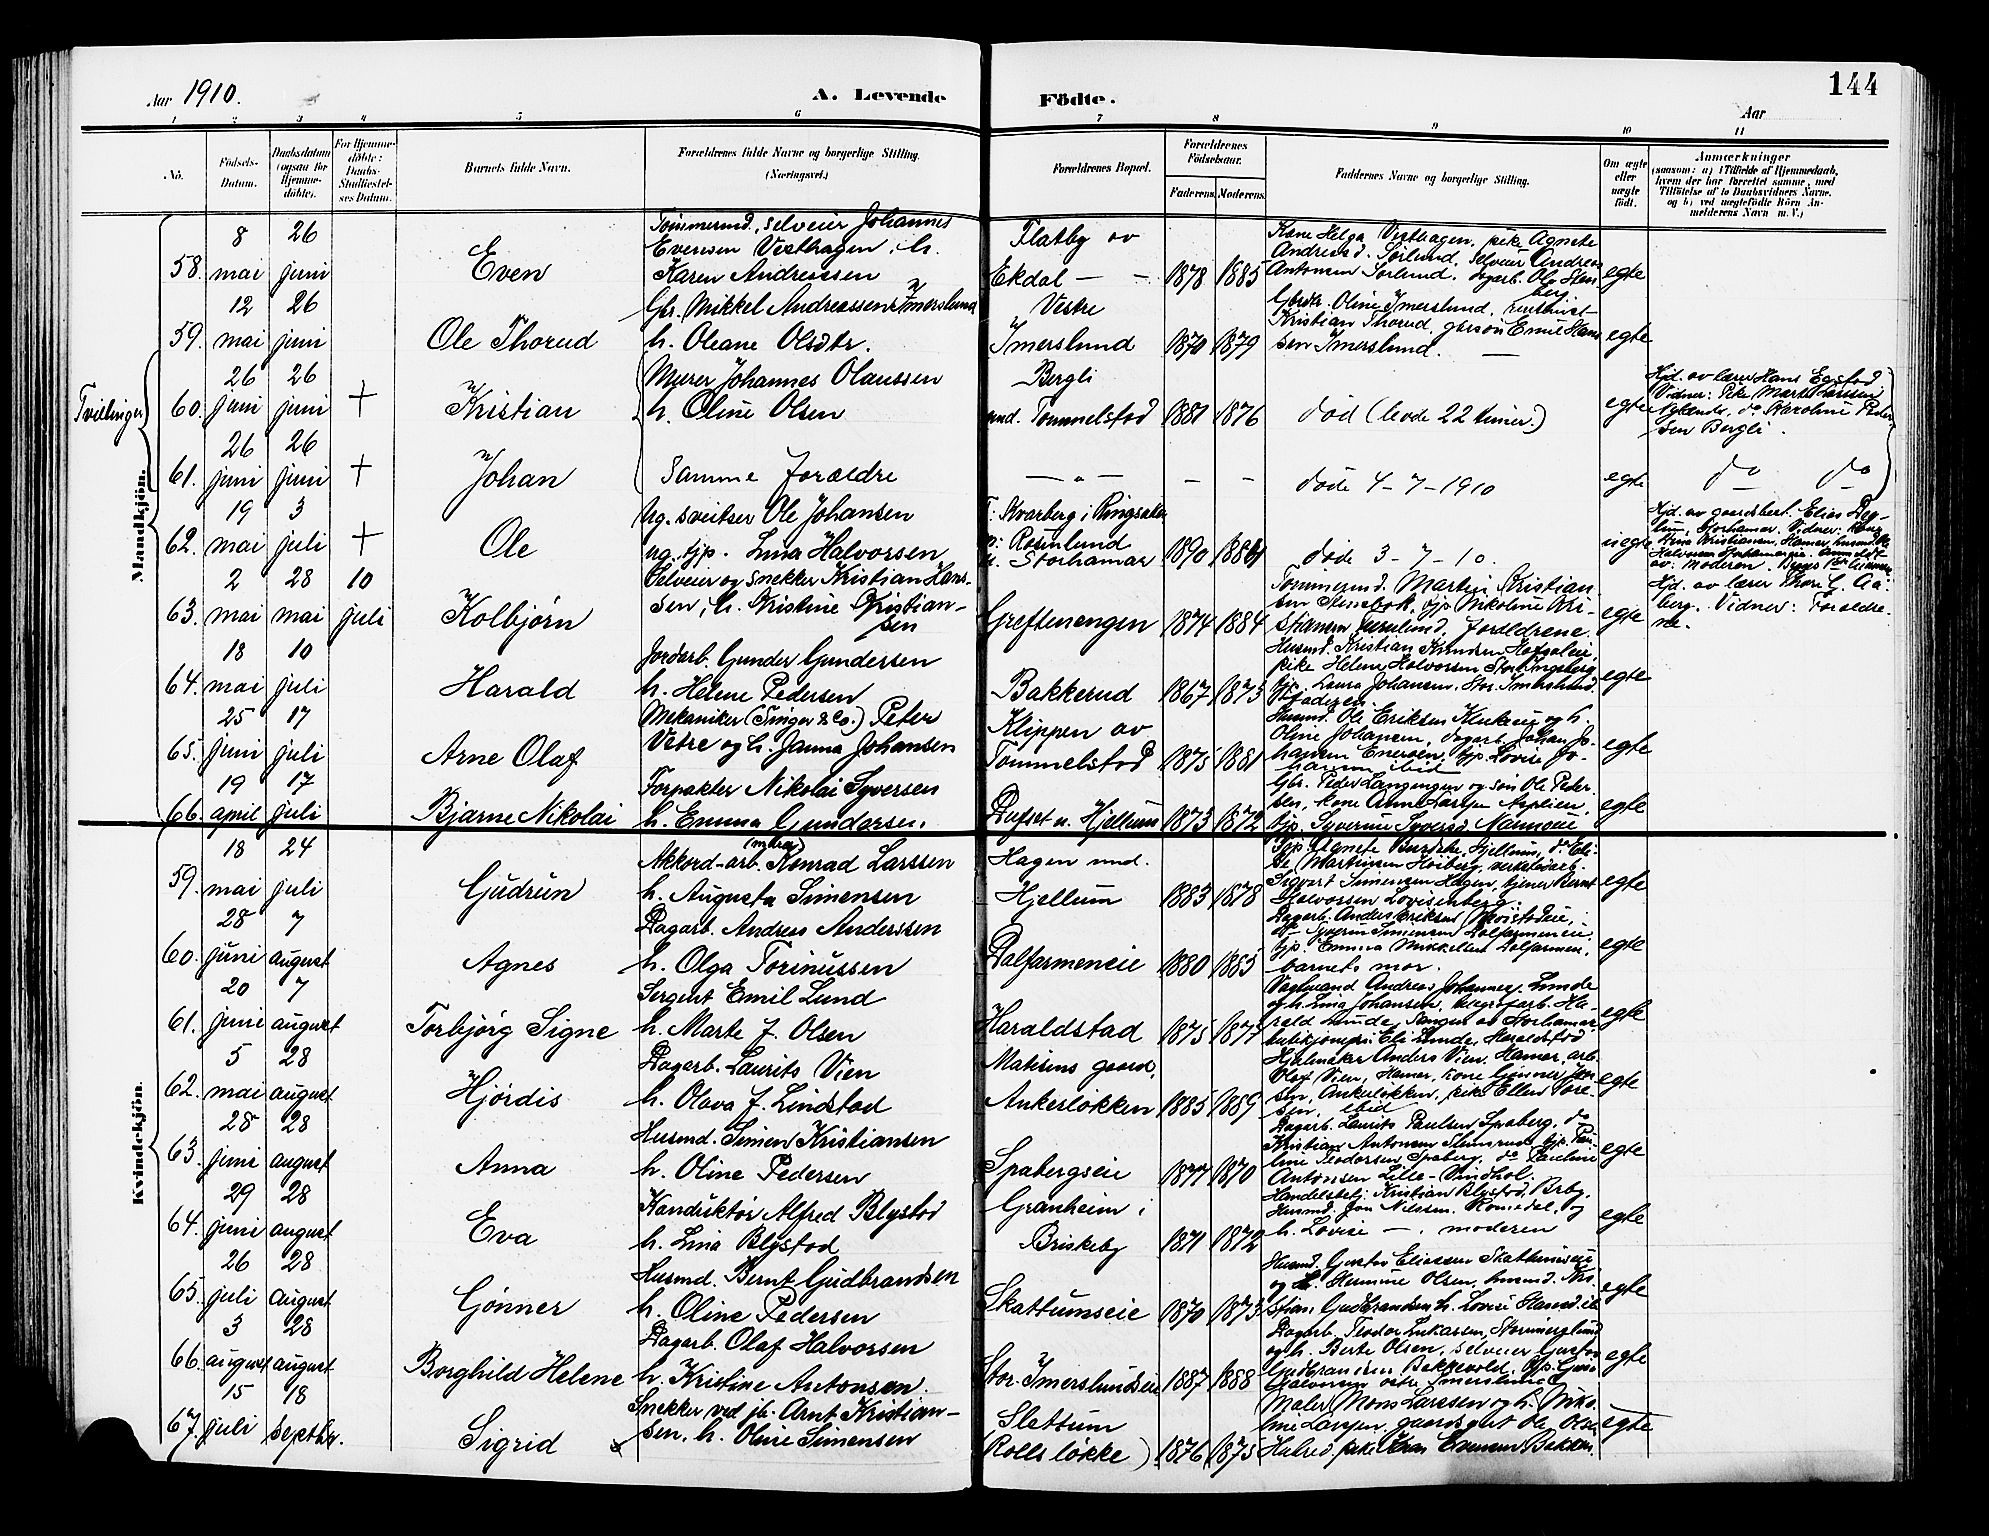 144
Aar 1910. A. Levende Födte. Aar
1 2 3 4 5 6 7 8 9 10 11
No. Födsels-Datum. Daabsdatum (ogsaa for Hjemme-döbte). For Hjemme-döbte: Daabs-Stadfæstel-ses Datum. Barnets fulde Navn. Forældrenes fulde Navne og borgerlige Stilling. (Næringsvei.) Forældrenes Bopæl. Forældrenes Födselsaar. Faderens. Moderens. Faddernes Navne og borgerlige Stilling. Om ægte eller uægte födt. Anmærkninger (saasom: a) i Tilfælde af Hjemmedaab, hvem der har forrettet samme, med Tilföielse af to Daabsvidners Navne, og b) ved uægtefödte Börn An-melderens Navn m. V.)
Mandkjön.
Tvillinger
58. 8 mai 26 juni Even Tömmermd., selveier Johannes
Evensen Vesthagen, h.
Karen Andreassen Flatby av
Ekdal — — 1878 1885 Kone Helga Vesthagen, pike Agnete
Andreasd. Sørlund, selveier Andreas
Antonsen Sørlund, dagarb. Ole Sten-
berg egte
59. 12 mai 26 juni Ole Thorud Gbr. Mikkel Andreassen Imerslund
h. Oleane Olsdtr. Vestre
Imerslund 1870 1879 Gbrdtr. Oline Imerslund,
Kristian Thorud, gbrsøn Emil Han-
sen Imerslund. — egte
60. 26 juni 26 juni + Kristian Murer Johannes Olaussen
h. Oline Olsen Bergli
und. Tommelstad 1881 1876 död (levde 22 timer.) egte Hjd. av lærer Hans Egstad
Vidner: Pike Marte Larssen
Nykænde, do Karoline Peder-
sen Bergli.
61. 26 juni 26 juni + Johan Samme forældre — „ — — — döde 4-7-1910 egte do do
62. 19 mai 3 juli + Ole Ug. sveitser Ole Johansen
ug. tjp. Lina Halvorsen F: Kvarberg i Ringsaker
Rosenlund
u. Storhamar 1890 döde 3-7-10. uegte Hjd. av gaardsbest. Elias Dæg-
lum, Storhamar. Vidner:
Kristiansen, Hamar,
Halvorsen Storhamareie. Anmeldt
av: moderen.
63. 2 mai 28 mai 10 juli Kolbjørn Selveier og snekker Kristian Hans-
sen, h. Kristine Kristian-
sen Greftenengen 1874 1884 Tommermd. Martin Kristian-
sen Stensbak, tjp Nikoline Kri-
stiansen, forældrene. egte Hjd. av lærer Thore C. Aa-
berg. Vidner: Forældre-
ne.
64. 18 mai 10 juli Harald Jordarb. Gunder Gundersen
h. Helene Pedersen Bakkerud 1867 1873 Husmd. Kristian Knudsen Hofsaleie,
pike Helene Halvorsen
tjp. Laura Johansen, Stor-Imerslund.
faderen. egte
65. 25 juni 17 juli Arne Olaf Mekaniker (Singer & Co.) Peter
Vetre og h. Janna Johansen Klippen av
Tommelstad 1875 1881 Husmd. Ole Eriksen og h.
Oline Johansen, dagarb. Johan Jo-
hansen Enersen, tjp. Lovise Jo-
hansen ibid egte
66. 19 april 17 juli Bjarne Nikolai Forpakter Nikolai Syversen
h. Emma Gundersen. Dufset u. Hjellum 1873 1872 Gbr. Peder Langengen og søn Ole Peder-
sen, kone Anne Larsen Aspleien,
tjp. Syverine Syversd. egte
Kvindekjön.
59. 18 mai 24 juli Gudrun Akkord-arb. (murer) Konrad Larssen
h. Augusta Simensen Hagen und.
Hjellum 1883 1878 Tjp. Agnete Hjellum, do Eli-
se Martinsen Høiberg,
Sigvart Simensen Hagen, tjener Bernt
Halvorsen Lovisenberg. egte
60. 28 juni 7 august Agnes Dagarb. Andreas Anderssen
h. Olga Torinussen Dalfarmeneie 1880 1885 Dagarb. Anders Eriksen
do Syverin Simensen Dalfarmeneie,
tjp. Emma Mikkelsen Dalfarmen,
barnets mor. egte
61. 20 juni 7 august Torbjørg Signe Sergent Emil Lund
h. Marte J. Olsen Haraldstad 1875 1877 Andreas Johannes. Lunde
og h. Lina Johansen, Ha-
rald Lunde, Sangen av Storhamar,
Eli Lunde, Haraldstad egte
62. 5 mai 28 august Hjørdis Dagarb. Laurits Vien
h. Olava J. Lindstad Matisens gaard,
Ankerløkken 1885 1889 Hjulmaker Anders Vien, Hamar, arb.
Olaf Vien, Hamar, kone Gunner
sen, Ankerløkken, pike Ellen Tore-
sen, ibid egte
63. 28 juni 28 august Anna Husmd. Simen Kristiansen
h. Oline Pedersen Spabergseie 1877 1870 Dagarb. Laurits Paulsen Spaberg, do
Kristian Antonsen tjp. Pau-
line Teodorsen Spaberg, do Pauline
Antonsen Lille-Vindhol. egte
64. 29 juni 28 august Eva Konduktør Alfred Blystad
h. Lina Blystad Granheim i
Briskeby 1871 1872 Handelsbetj. Kristian Blystad,
Husmd. Jon Nilssen, Romedal, og
h. Lovise — , moderen egte
65. 26 juli 28 august Gønner Husmd. Bernt Gudbrandsen
h. Oline Pedersen Skattumseie 1870 1873 Husmd. Gustav Eliassen Skattumseie
og h. Hermine Olsen, husmd. Kri-
stian Gudbrandsen, h. Lovise egte
66. 3 august 28 august Borghild Helene Dagarb. Olaf Halvorsen
h. Kristine Antonsen. Stor-Imerslundseie 1887 1888 Dagarb. Teodor Lukassen, Storimerslund
og h. Berte Olsen, selveier Gustav
Gudbrandsen Bakkevold,
Halvorsen østre Imerslund egte
67. 15 juli 18 septbr. Sigrid Snekker ved jb. Arnt Kristian-
sen, h. Oline Simensen Slettum
(Rollsløkke) 1876 1875 Maler Mons Larssen og h. Niko-
line Larsen, gaardsgut Ole Olsen
pike egte